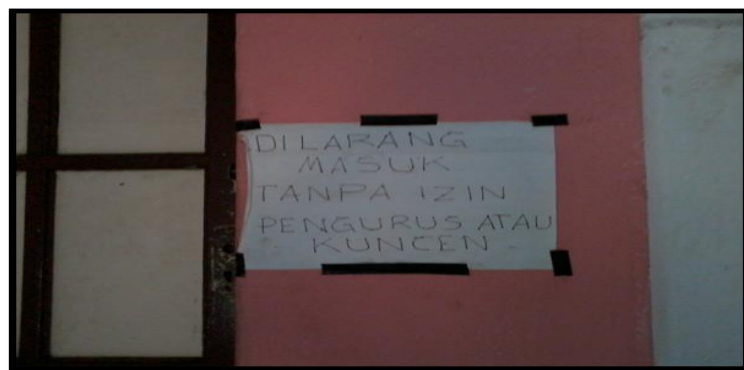 DILARANG
MASUK
TANPA IZIN
PENGURUS ATAU
KUNCEN